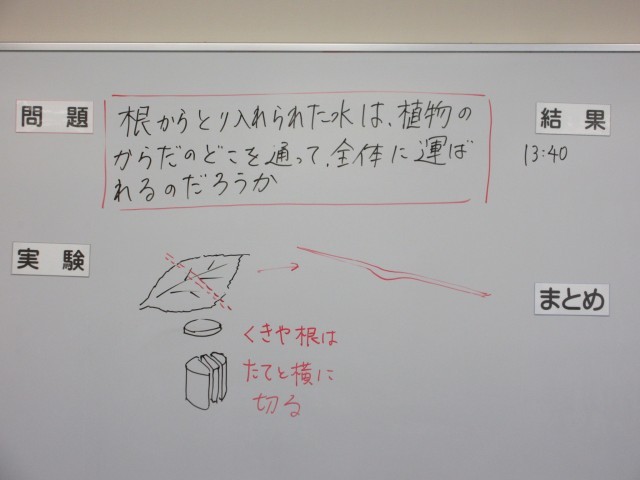 問題
根からとり入れられた水は、植物の
からだのどこを通って、全体に運ば
れるのだろうか
結果
13:40
実験
くきや根は
たてと横に
切る
まとめ